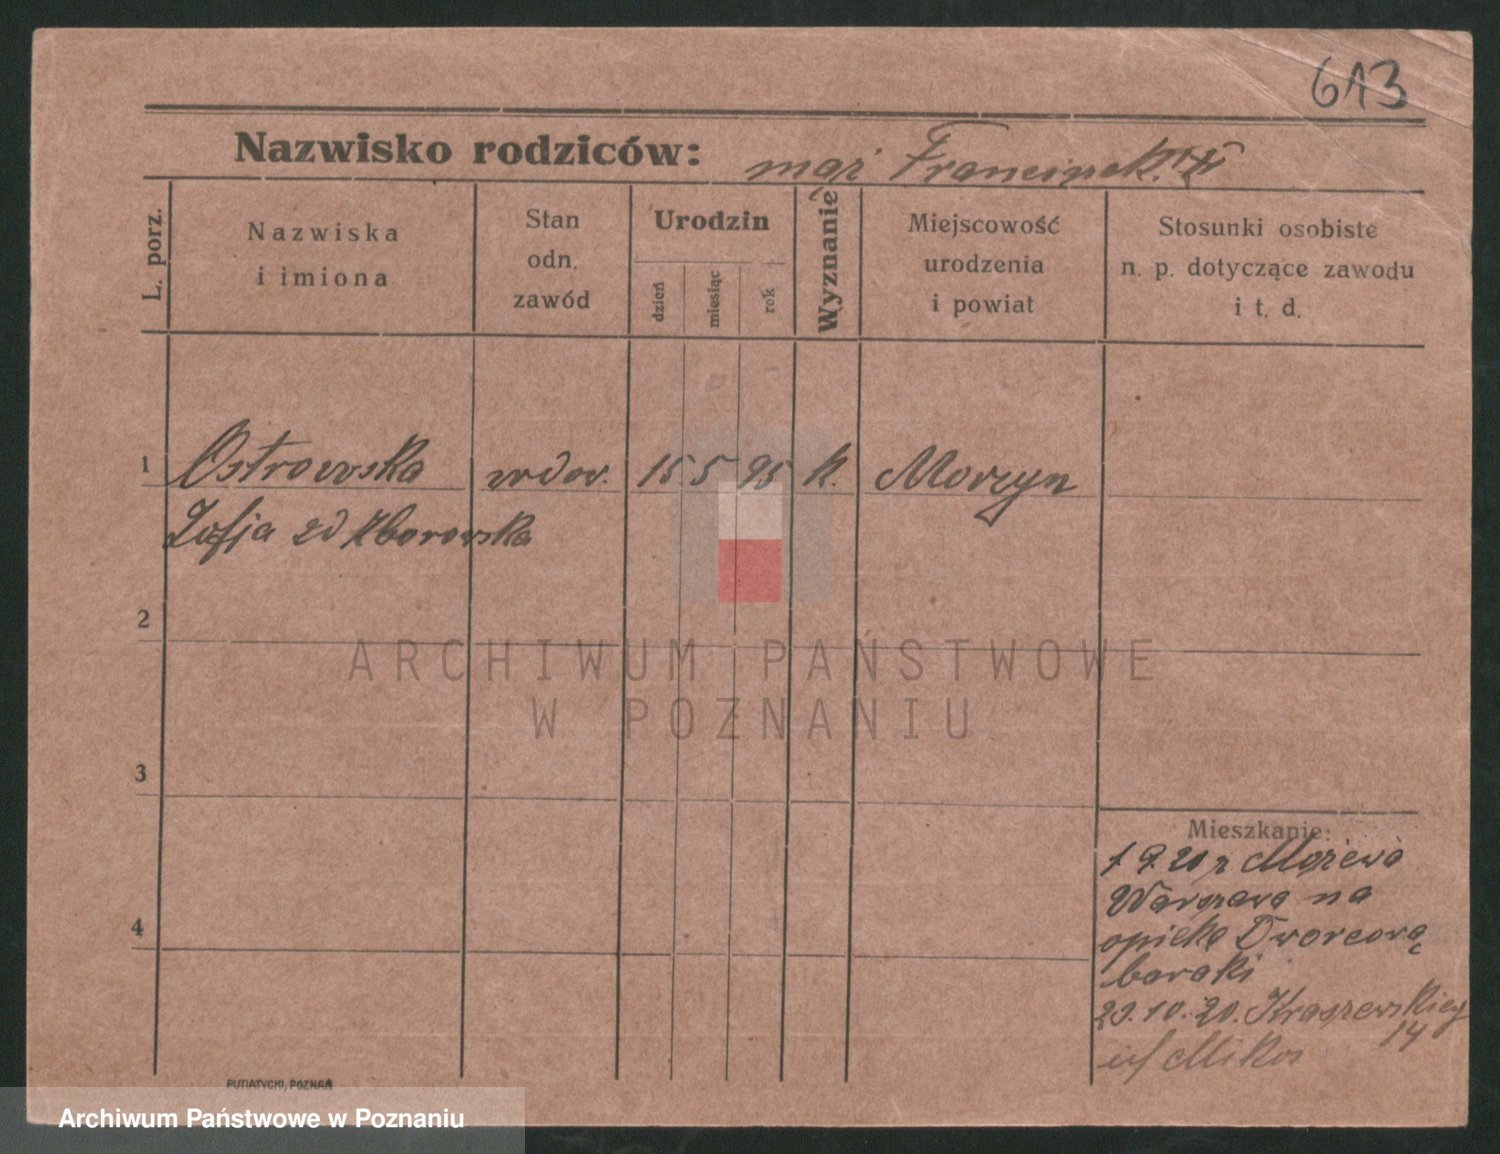 613
Nazwisko rodziców: mąż Franciszek
L. porz.
Nazwiska
i imiona
Stan
odn.
zawód
Urodzin
dzień
miesiąc
rok
Wyznanie
Miejscowość
urodzenia
i powiat
Stosunki osobiste
n. p. dotyczące zawodu
i t. d.
1 Ostrowska wdow. 15 5 95 k.
Zofja zd Zborowska
2
ARCHIWUM PAŃSTWOWE
W POZNANIU
3
Mieszkanie:
1 9. 20 z
Warszawa na
opieką Dworcową
baraki
23.10.20. Kraszewskiej
14
PUTIATYCKI, POZNAŃ
4
Archiwum Państwowe w Poznaniu